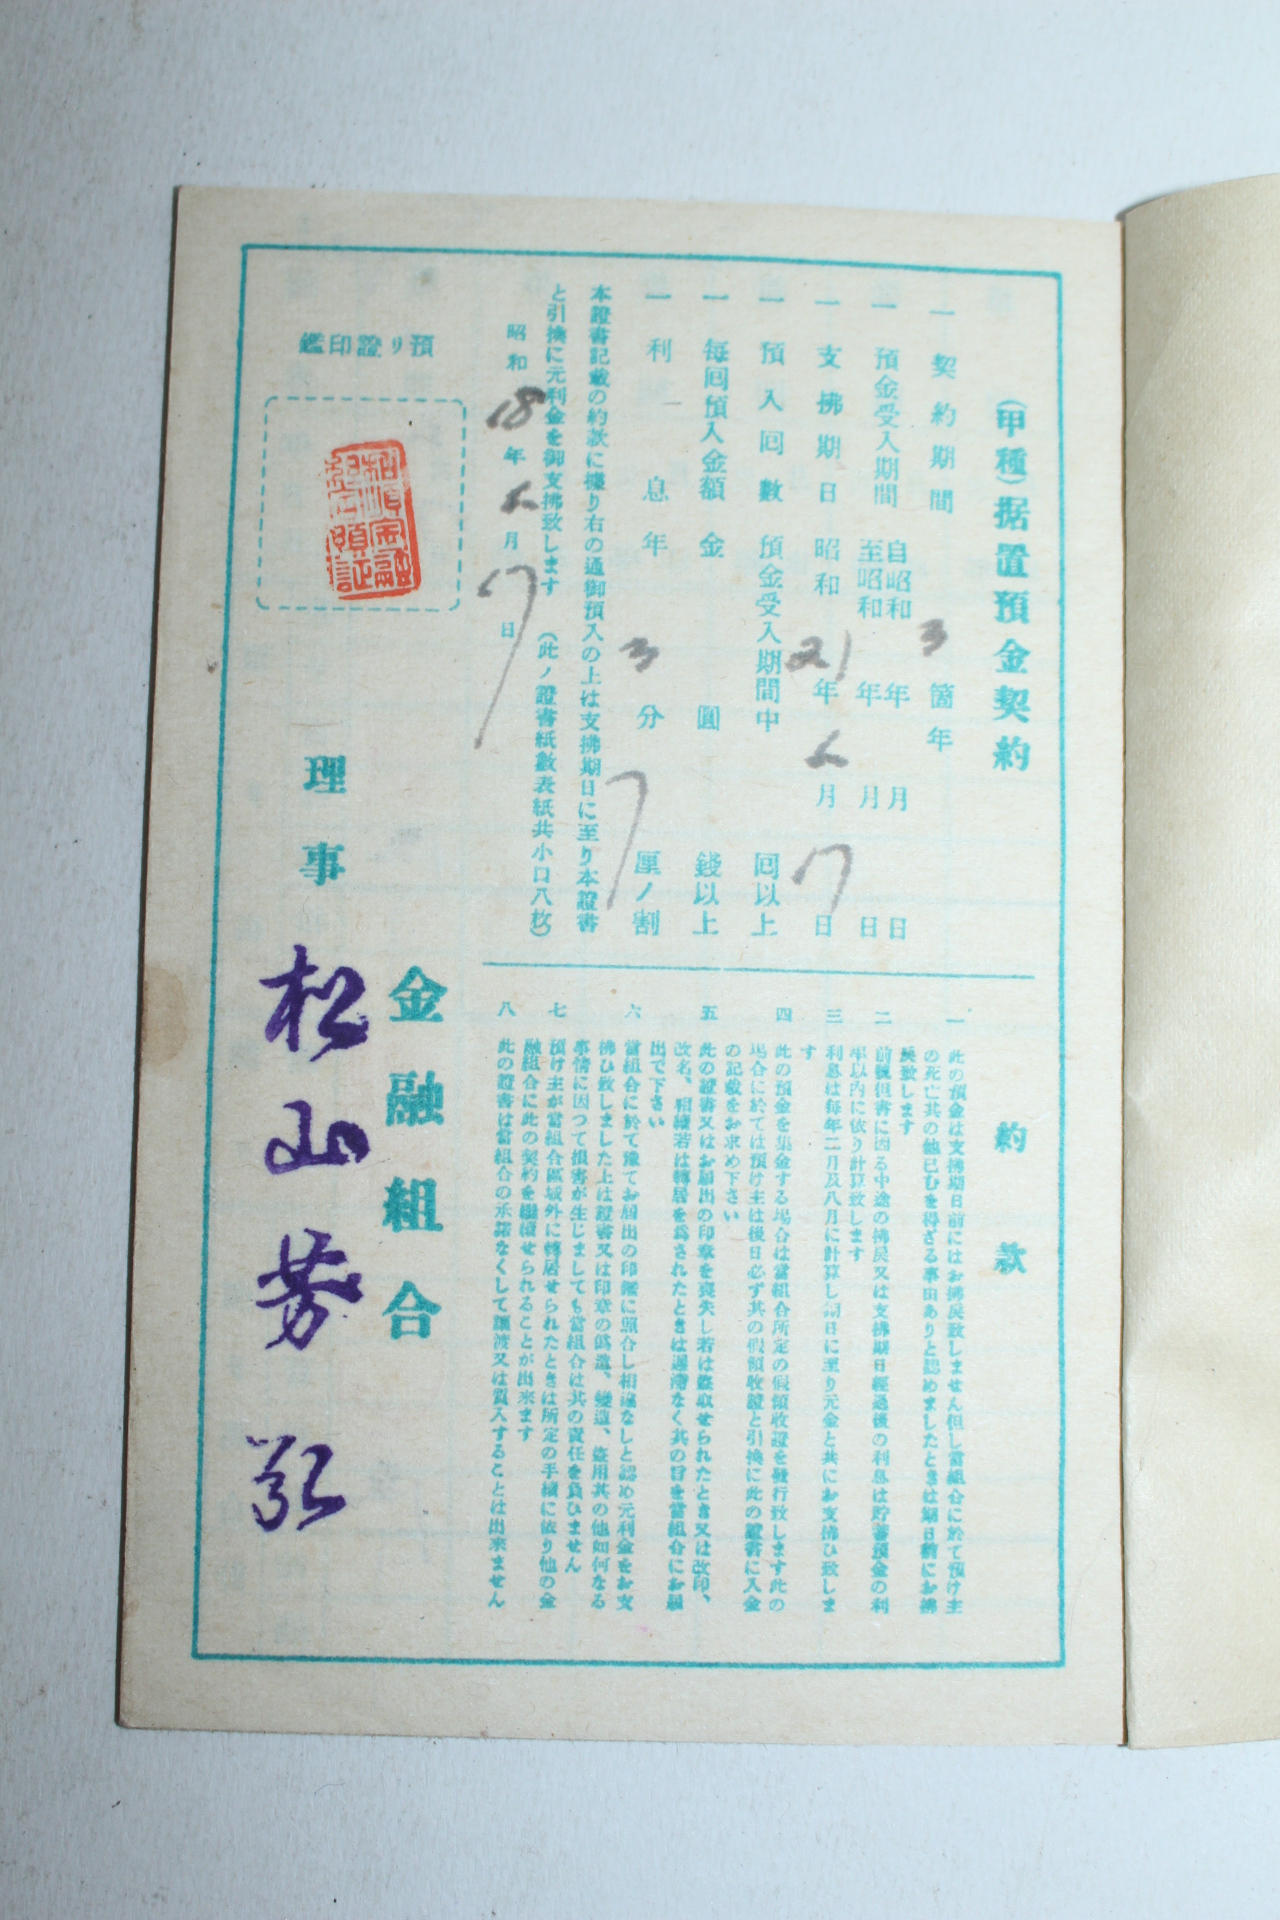 (甲種)据置預金契約
一 契約期間 3 箇年
一 預金受入期間 自昭和 年 月 日
至昭和 年 月 日
一 支拂期日 昭和 21年 月 7日
一 預入回數 預金受入期間中 回以上
一 每回預入金額 金 圓 錢以上
一 利息 年 3分 7厘ノ割
本證書記載の約款に據り右の通御預入の上は支拂期日に至り本證書
と引換に元利金を御支拂致します (此ノ證書紙數表紙共小口八枚)
昭和 18年 月 7日
預リ證印鑑
金融組合
理事 松山芳
約款
一 此の預金は支拂期日前にはお拂戾致しません但し當組合に於て預け主
の死亡其の他已むを得ざる事由ありと認めましたときは期日前にお拂
戾致します
二 前號但書に因る中途の拂戾又は支拂期日經過後の利息は貯蓄預金の利
率以內に依り計算致します
三 利息は每年二月及八月に計算し期日に至り元金と共にお支拂ひ致しま
す
四 此の預金を集金する場合は當組合所定の假領收證を發行致します此の
場合に於ては預け主は後日必ず其の假領收證と引換に此の證書に入金
の記載をお求め下さい
五 此の證書又はお屆出の印章を喪失し若は盜取せられたとき又は改印、
改名、相續若は轉居を爲されたときは遲滯なく其の旨を當組合にお屆
出で下さい
六 當組合に於て豫てお屆出の印鑑に照合し相違なしと認め元利金をお支
拂ひ致しました上は證書又は印章の僞造、變造、盜用其の他如何なる
事情に因つて損害が生じましても當組合は其の責任を負ひません
七 預け主が當組合區域外に轉居せられたときは所定の手續に依り他の金
融組合に此の契約を繼續せられることが出來ます
八 此の證書は當組合の承諾なくして讓渡又は質入することは出來ません